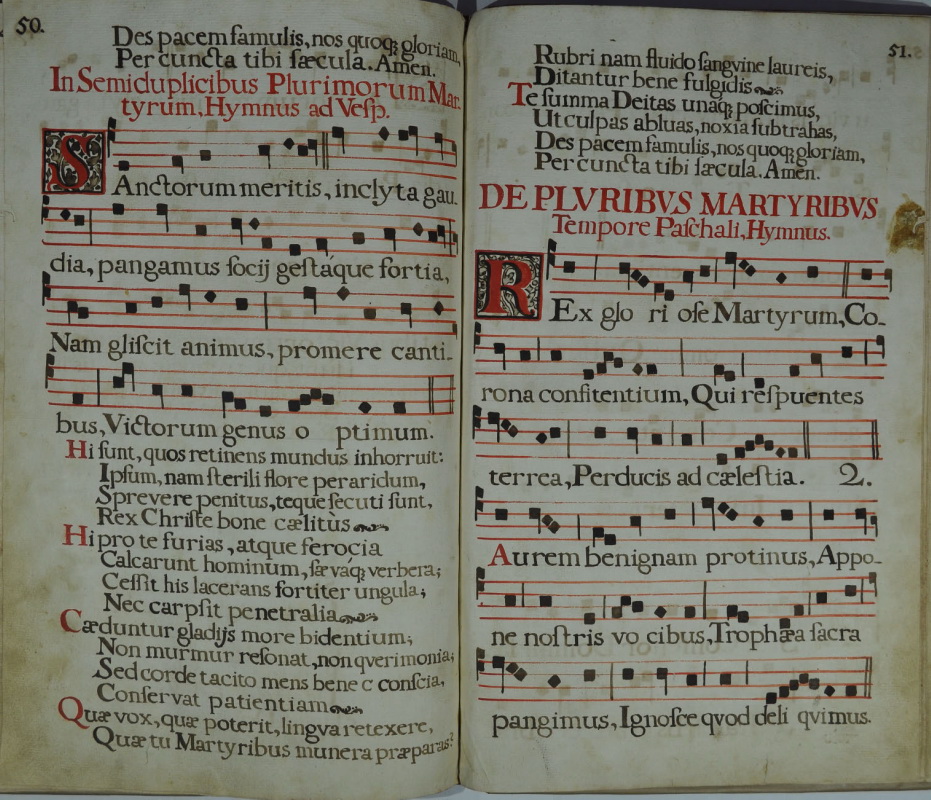 50.
Des pacem famulis, nos quoq; gloriam,
Per cuncta tibi sæcula. Amen.
In Semiduplicibus Plurimorum Mar-
tyrum, Hymnus ad Vesp.
SAnctorum meritis, inclyta gau-
dia, pangamus socij gestáque fortia,
Nam gliscit animus, promere canti-
bus, Victorum genus o ptimum.
Hi sunt, quos retinens mundus inhorruit:
Ipsum, nam sterili flore peraridum,
Sprevere penitus, teque secuti sunt,
Rex Christe bone cælitùs
Hi pro te furias, atque ferocia
Calcarunt hominum, sævaq; verbera;
Cessit his lacerans fortiter ungula;
Nec carpsit penetralia
Cæduntur gladijs more bidentium;
Non murmur resonat, non qverimonia;
Sed corde tacito mens bene c conscia,
Conservat patientiam
Quæ vox, quæ poterit, lingva retexere,
Quæ tu Martyribus munera præparas?
51.
Rubri nam fluido sangvine laureis,
Ditantur bene fulgidis
Te summa Deitas unaq; poscimus,
Ut culpas abluas, noxia subtrahas,
Des pacem famulis, nos quoq; gloriam,
Per cuncta tibi sæcula. Amen.
DE PLVRIBVS MARTYRIBVS
Tempore Paschali, Hymnus.
REx glo ri ose Martyrum, Co-
rona confitentium, Qui respuentes
terrea, Perducis ad cælestia. 2.
Aurem benignam protinus, Appo-
ne nostris vo cibus, Trophæa sacra
pangimus, Ignosce qvod deli qvimus.